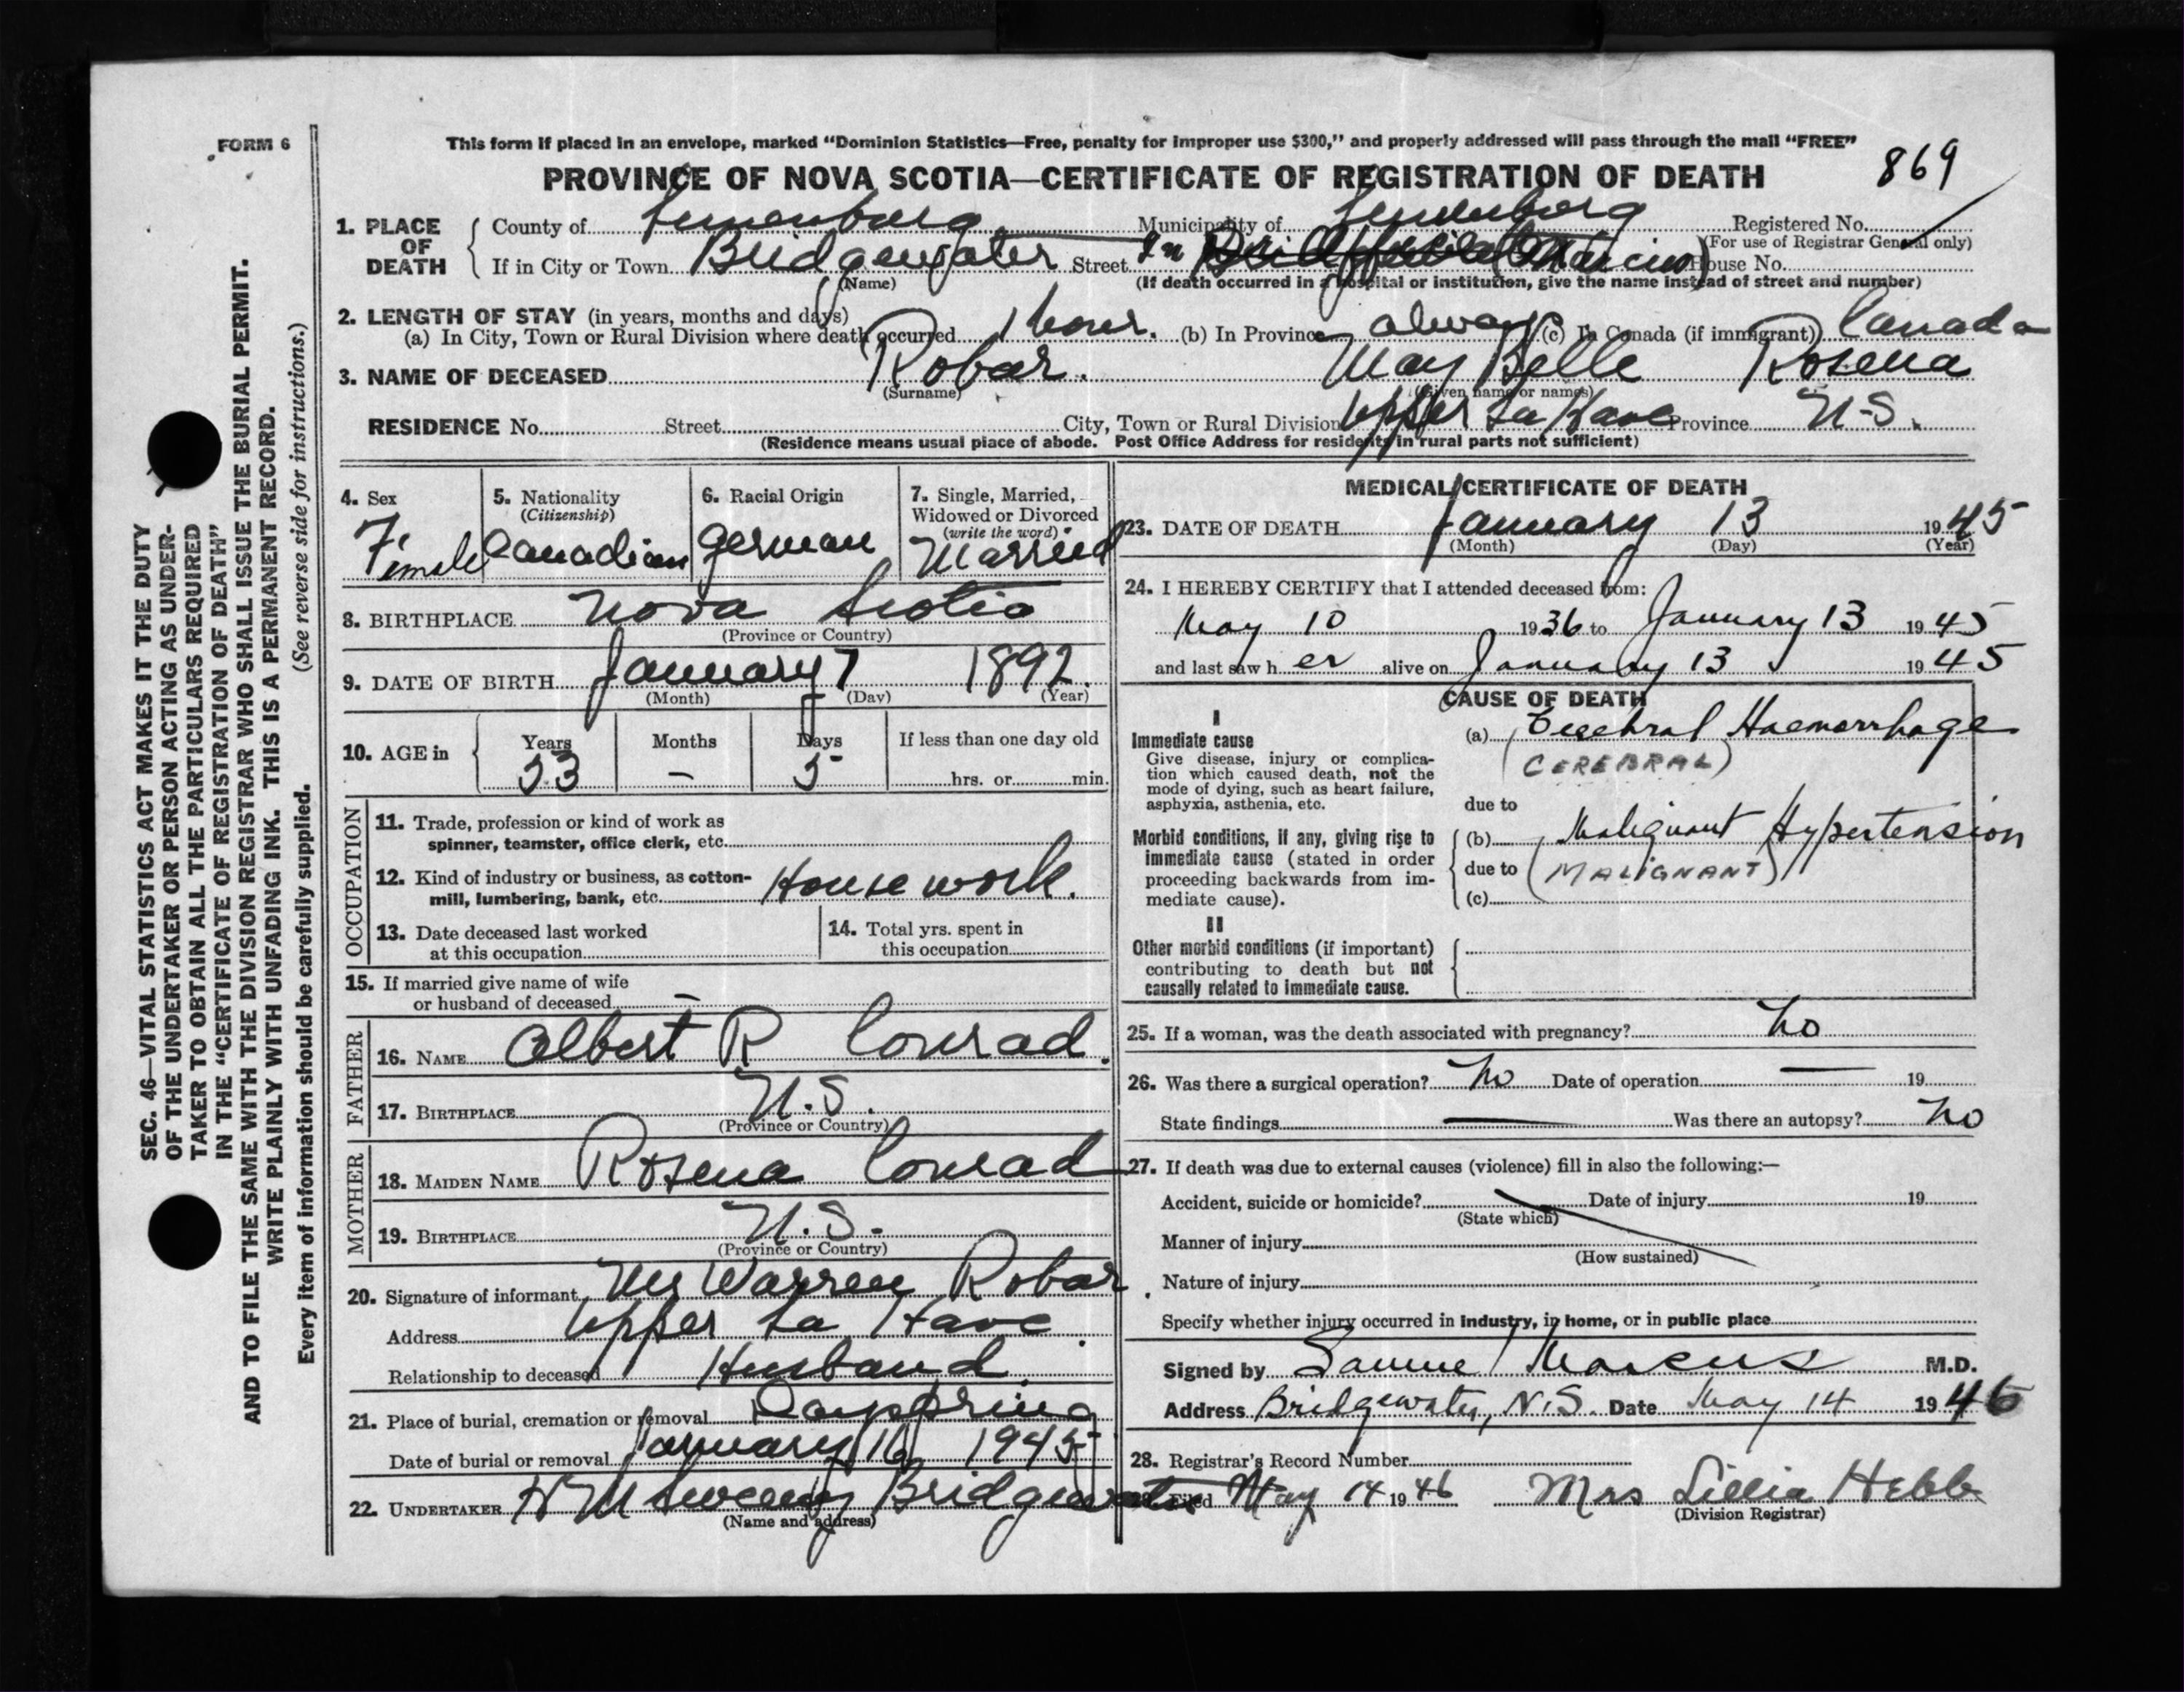 FORM 6
This form if placed in an envelope, marked "Dominion Statistics—Free, penalty for improper use $300," and properly addressed will pass through the mail "FREE"
PROVINCE OF NOVA SCOTIA—CERTIFICATE OF REGISTRATION OF DEATH
869
1. PLACE OF DEATH
County of Lunenburg Municipality of Lunenburg Registered No.
(For use of Registrar General only)
If in City or Town Bridgewater Street In House No.
(Name) (If death occurred in a hospital or institution, give the name instead of street and number)
2. LENGTH OF STAY (in years, months and days)
(a) In City, Town or Rural Division where death occurred 1 hour. (b) In Province always (c) In Canada (if immigrant) Canada
3. NAME OF DECEASED Robar. May Belle Rosena
(Surname) (Given name or names)
RESIDENCE No. Street City, Town or Rural Division Upper La Have Province N.S.
(Residence means usual place of abode. Post Office Address for residents in rural parts not sufficient)
4. Sex
Female
5. Nationality
(Citizenship)
Canadian
6. Racial Origin
German
7. Single, Married,
Widowed or Divorced
(write the word)
Married
8. BIRTHPLACE Nova Scotia
(Province or Country)
9. DATE OF BIRTH January 7 1892.
(Month) (Day) (Year)
10. AGE in
Years Months Days If less than one day old
53 — 5 hrs. or min.
OCCUPATION
11. Trade, profession or kind of work as
spinner, teamster, office clerk, etc.
12. Kind of industry or business, as cotton-
mill, lumbering, bank, etc. Housework.
13. Date deceased last worked
at this occupation
14. Total yrs. spent in
this occupation
15. If married give name of wife
or husband of deceased —
FATHER
16. NAME Albert R Conrad.
17. BIRTHPLACE N.S.
(Province or Country)
MOTHER
18. MAIDEN NAME Rosena Conrad
19. BIRTHPLACE N.S.
(Province or Country)
20. Signature of informant Mr Warren Robar.
Address Upper La Have.
Relationship to deceased Husband.
21. Place of burial, cremation or removal Dayspring
Date of burial or removal January 16 1945
22. UNDERTAKER H M Sweeny Bridgewater
(Name and address)
MEDICAL CERTIFICATE OF DEATH
23. DATE OF DEATH January 13 1945
(Month) (Day) (Year)
24. I HEREBY CERTIFY that I attended deceased from:
May 10 1936 to January 13 1945
and last saw her alive on January 13 1945
CAUSE OF DEATH
I
Immediate cause
Give disease, injury or complica-
tion which caused death, not the
mode of dying, such as heart failure,
asphyxia, asthenia, etc.
(a) Cerebral Haemorrhage
(CEREBRAL)
due to
Morbid conditions, if any, giving rise to
immediate cause (stated in order
proceeding backwards from im-
mediate cause).
(b) Malignant Hypertension
due to (MALIGNANT)
(c)
II
Other morbid conditions (if important)
contributing to death but not
causally related to immediate cause.
25. If a woman, was the death associated with pregnancy? No
26. Was there a surgical operation? No Date of operation — 19
State findings — Was there an autopsy? No
27. If death was due to external causes (violence) fill in also the following:—
Accident, suicide or homicide? Date of injury 19
(State which)
Manner of injury
(How sustained)
Nature of injury
Specify whether injury occurred in industry, in home, or in public place
Signed by Samuel Marcus M.D.
Address Bridgewater, N.S. Date May 14 1946
28. Registrar's Record Number
Filed May 14 1946 Mrs Lillia Hebb
(Division Registrar)
SEC. 46—VITAL STATISTICS ACT MAKES IT THE DUTY
OF THE UNDERTAKER OR PERSON ACTING AS UNDER-
TAKER TO OBTAIN ALL THE PARTICULARS REQUIRED
IN THE "CERTIFICATE OF REGISTRATION OF DEATH"
AND TO FILE THE SAME WITH THE DIVISION REGISTRAR WHO SHALL ISSUE THE BURIAL PERMIT.
WRITE PLAINLY WITH UNFADING INK. THIS IS A PERMANENT RECORD.
Every item of information should be carefully supplied. (See reverse side for instructions.)